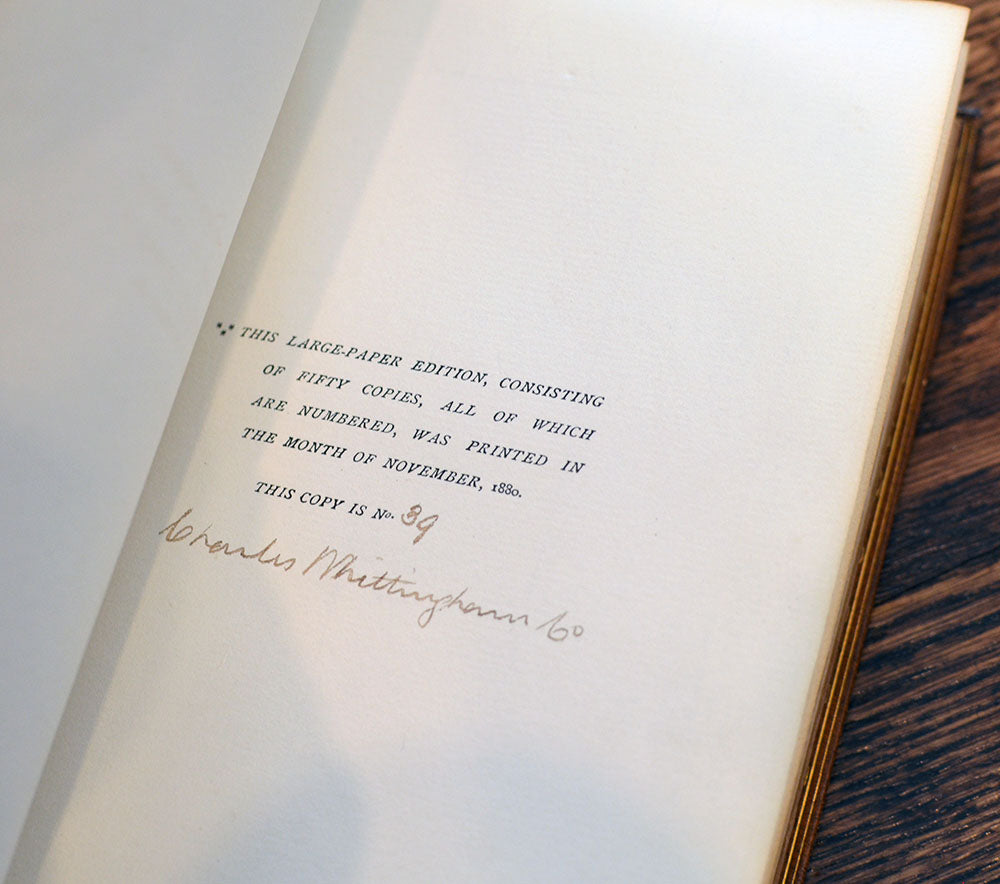 ⁂ THIS LARGE-PAPER EDITION, CONSISTING
OF FIFTY COPIES, ALL OF WHICH
ARE NUMBERED, WAS PRINTED IN
THE MONTH OF NOVEMBER, 1880.
THIS COPY IS No. 39
Charles Whittingham Co